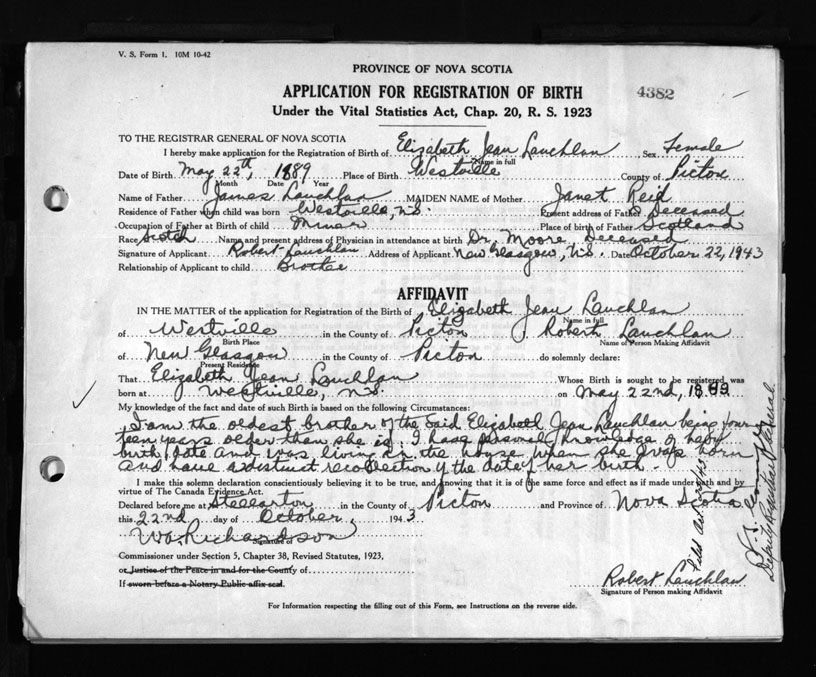 V. S. Form 1. 10M 10-42
PROVINCE OF NOVA SCOTIA
APPLICATION FOR REGISTRATION OF BIRTH 4382
Under the Vital Statistics Act, Chap. 20, R. S. 1923
TO THE REGISTRAR GENERAL OF NOVA SCOTIA
I hereby make application for the Registration of Birth of Elizabeth Jean Lauchlan Sex Female
Name in full
Date of Birth May 22th, 1889 Place of Birth Westville County of Picton
Month Date Year
Name of Father James Lauchlan MAIDEN NAME of Mother Janet Reid
Residence of Father when child was born Westville, N.S. Present address of Father Deceased
Occupation of Father at Birth of child Miner Place of birth of Father Scotland
Race Scotch Name and present address of Physician in attendance at birth Dr. Moore Deceased
Signature of Applicant Robert Lauchlan Address of Applicant New Glasgow, N.S. Date October 22, 1943
Relationship of Applicant to child Brother
AFFIDAVIT
IN THE MATTER of the application of Registration of the Birth of Elizabeth Jean Lauchlan
Name in full
of Westville in the County of Picton, Robert Lauchlan
Birth Place Name of Person Making Affidavit
of New Glasgow in the County of Picton do solemnly declare:
Present Residence
That Elizabeth Jean Lauchlan Whose Birth is sought to be registered was
born at Westville, N.S. on May 22nd, 1889
My knowledge of the fact and date of such Birth is based on the following Circumstances:
I am the oldest brother of the said Elizabeth Jean Lauchlan being four
teen years older than she is. I have personal knowledge of her
birth date and was living in the house when she was born
and have a distinct recollection of the date of her birth.
I make this solemn declaration conscientiously believing it to be true, and knowing that it is of the same force and effect as if made under oath and by
virtue of The Canada Evidence Act.
Declared before me at Stellarton in the County of Picton and Province of Nova Scotia
this 22nd day of October, 1943
Richardson
Signature of
Commissioner under Section 5, Chapter 38, Revised Statutes, 1923,
or Justice of the Peace in and for the County of
If sworn before a Notary Public affix seal.
Robert Lauchlan
Signature of Person making Affidavit
For Information respecting the filling out of this Form, see Instructions on the reverse side.
Deputy Registrar General